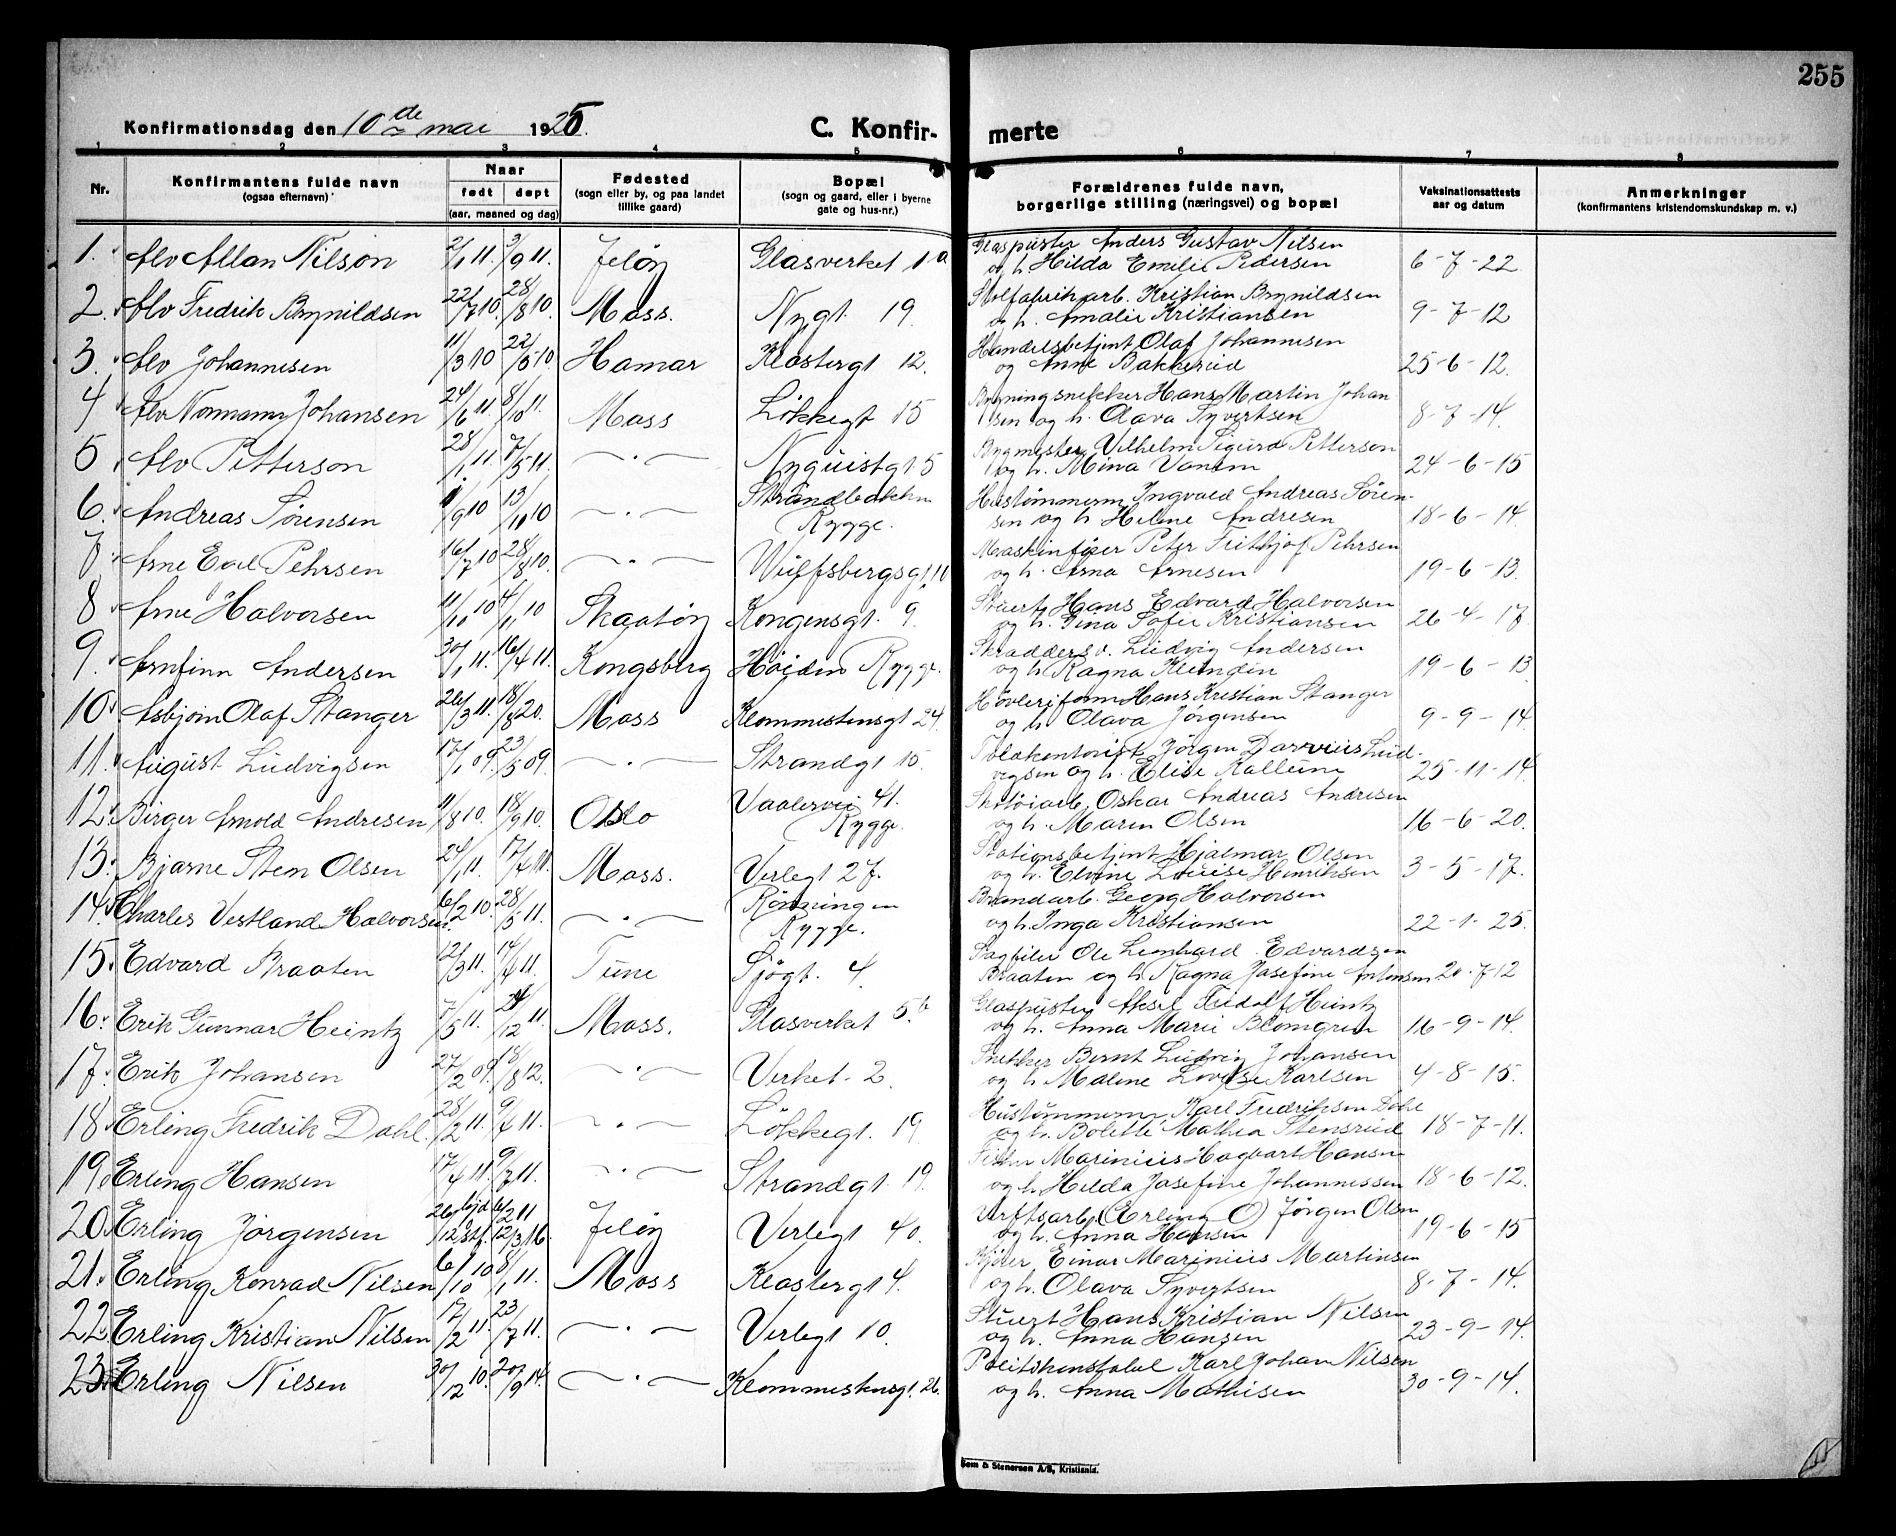 255
Konfirmationsdag den 10de mai 1925.
C. Konfir- merte
1 2 3 4 5 6 7 8
Nr.
Konfirmantens fulde navn
(ogsaa efternavn)
Naar
født døpt
(aar, maaned og dag)
Fødested
(sogn eller by, og paa landet
tillike gaard)
Bopæl
(sogn og gaard, eller i byerne
gate og hus-nr.)
Forældrenes fulde navn,
borgerlige stilling (næringsvei) og bopæl
Vaksinationsattests
aar og datum
Anmerkninger
(konfirmantens kristendomskundskap m. v.)
1. Alv Allan Nilson 2/1 11. 3/9 11. Jeløy Glasverket 1a Glaspuster Anders Gustav Nilsen
og h. Hilda Emilie Pedersen 6-7-22
2. Alv Fredrik Brynildsen 22/7 10 28/8 10. Moss. Nygt. 19. Stolfabrikarb. Kristian Brynildsen
og h. Amalie Kristiansen 9-7-12
3. Alv Johannesen 11/3 10 22/5 10 Hamar Klostergt 12. Handelsbetjent Olaf Johannesen
og Anne Bakkerud 25-6-12.
4 Alv Normann Johansen 24/6 11. 8/10 11. Moss Løkkegt 15 Bygningsnekker Hans Martin Johan
sen og h. Olava Syvertsen 8-7-14.
5. Alv Petterson 28/1 11. 7/5 11. —·— Nyquistgt 5 Bygmester Vilhelm Sigurd Petterson
og h. Mina Vanem 24-6-15
6. Andreas Sørensen 1/9 10 13/11 10 —·— Strandbakken
Rygge. Hustømmerm Ingvald Andreas Søren-
sen og h Helene Andresen 18-6-14.
7. Arne Egil Pehrsen 16/7 10 28/8 10. —·— Wulfsbergsgt. 11 Maskinfører Peter Frithjof Pehrsen
og h. Arna Arnesen 19-6-13.
8 Arne Halvorsen 11/10 10 4/1 10 Skaatøy Kongensgt. 9. Stuert Hans Edvard Halvorsen
og h. Gina Sofie Kristiansen 26-4-17.
9. Arnfinn Andersen 30/1 11. 16/4 11. Kongsberg Høiden Rygge. Skradders v. Ludvig Andersen
og h. Ragna Klundin 19-6-13
10. Asbjørn Olaf Stanger 26/3 11. 18/8 20. Moss Klommestensgt 24. Høvleriform Hans Kristian Stanger
og h. Olava Jørgensen 9-9-14
11. August Ludvigsen 12/1 09. 23/5 09. —·— Strandgt 15. Jørgen Darvius Lud-
vigsen og h. Elise Kallum 25-11-14.
12. Birger Arnold Andresen 11/8 10. 18/9 10. Oslo Vaalervei 41.
Rygge. Skotøiarb. Oskar Andreas Andresen
og h. Maren Olsen 16-6-20.
13. Bjarne Sten Olsen 24/1 11. 17/4 11. Moss. Verlegt 27. Stationsbetjent Hjalmar Olsen
og h. Elvine Louise Henriksen 3-5-17.
14. Charles Vestland Halvorsen. 6/2 10. 28/5 11. —·— Rønningen
Rygge. Brandarb. Georg Halvorsen
og h. Inga Kristiansen 22-1-25.
15. Edvard Braaten 12/3 11. 14/4 11. Tune Sjøgt. 4. Sagfiler Ole Leonhard Edvardsen
Braaten og h. Ragna Josefine Antonsen 20-7-12
16. Erik Gunnar Heintz 7/5 11. 24/12 11 Moss. Glasverket 5.b Glaspuster Aksel Fredolf Heintz
og h. Anna Marie Blomgren 16-9-14.
17. Erik Johansen 27/2 09. 18/8 12. —·— Verket. 2. Snekker Bernt Ludvig Johansen
og h Malene Lovise Karlsen 4-8-15.
18. Erling Fredrik Dahl. 28/2 11. 9/4 11. —·— Løkkegt. 19 Hustømmerm Karl Fredriksen Dahl
og h. Bolette Mathea Stensrud 18-7-11.
19. Erling Hansen 17/4 11. 9/7 11. —·— Strandgt. 19. Fisker Marinius Hagbart Hansen
og h. Hilda Josefine Johannessen 18-6-12.
20. Erling Jørgensen 26/12 hjd 6/2 11 12/3 16. Jeløy Verlegt 40. Verftsarb. (Erling O) Jørgen Olsen
og h. Anna Hansen 19-6-15
21. Erling Konrad Nilsen 6/10 10 8/1 11. Moss Klostergt 4. Kjører Einar Marinius Martinsen
og h. Olava Syvertsen 8-7-14.
22. Erling Kristian Nilsen 12/2 11. 23/7 11. —·— Verlegt 10. Stuert Hans Kristian Nilsen
og h. Anna Hansen 23-9-14.
23. Erling Nilsen 30/12 10. 20/9 14. —·— Klommestensgt. 26. Politikonstabel Karl Johan Nilsen
og h. Anna Mathisen 30-9-14.
& Stenersen A/S, Kristiania.